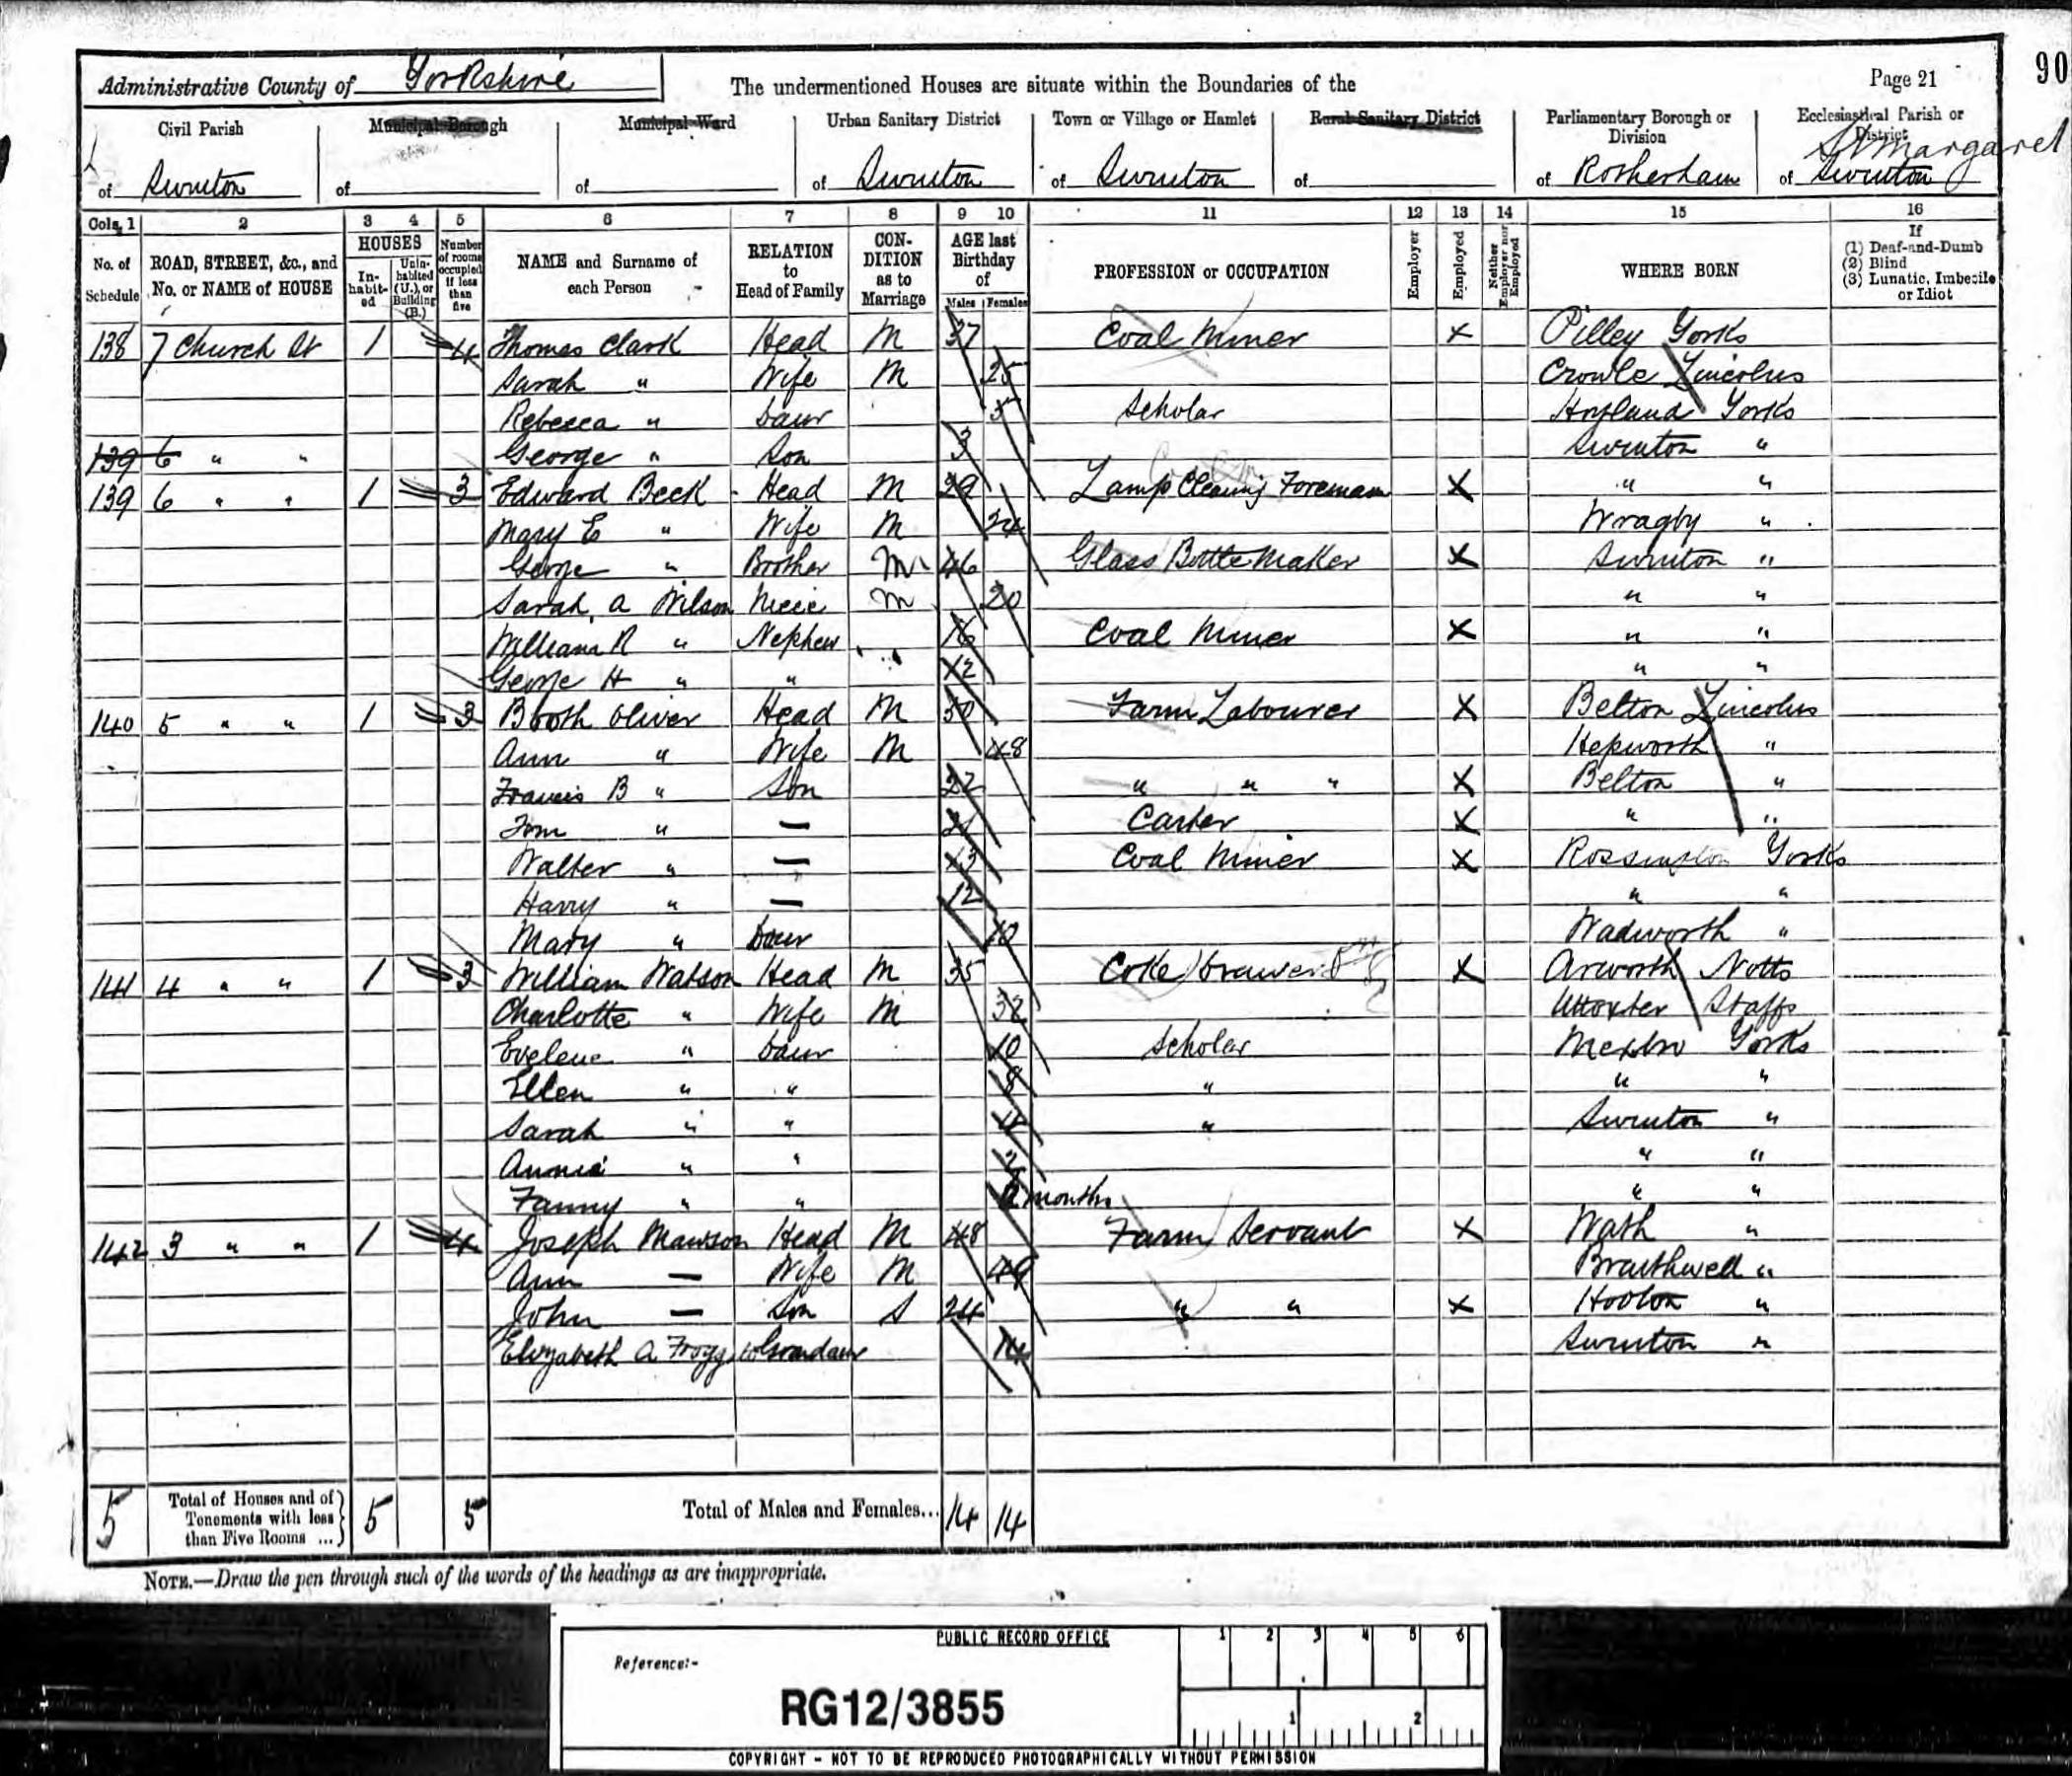 90
Administrative County of Yorkshire The undermentioned Houses are situate within the Boundaries of the Page 21
Civil Parish Municipal Borough Municipal Ward Urban Sanitary District Town or Village or Hamlet Rural Sanitary District Parliamentary Borough or Division Ecclesiastical Parish or District
St Margaret
of Swinton of of of Swinton of Swinton of of Rotherham of Swinton
Cols. 1 2 3 4 5 6 7 8 9 10 11 12 13 14 15 16
No. of Schedule ROAD, STREET, &c., and No. or NAME of HOUSE HOUSES Inhabited Uninhabited (U.), or Building (B.) Number of rooms occupied if less than five NAME and Surname of each Person RELATION to Head of Family CONDITION as to Marriage AGE last Birthday of Males Females PROFESSION or OCCUPATION Employer Employed Neither Employer nor Employed WHERE BORN If (1) Deaf-and-Dumb (2) Blind (3) Lunatic, Imbecile or Idiot
138 7 Church St 1 4 Thomas Clark Head M 27 Coal Miner X Pilley Yorks
Sarah " Wife M 25 Crowle Lincolns
Rebecca " Daur 5 Scholar Hoyland Yorks
139 6 " " George " Son 3 Swinton "
139 6 " " 1 3 Edward Beck Head M 29 Lamp Cleaning Foreman X " "
Mary E " Wife M 24 Wragby "
George " Brother M 46 Glass Bottle Maker X Swinton "
Sarah A Wilson Niece M 20 " "
William R " Nephew 16 Coal Miner X " "
George H " " 12 " "
140 5 " " 1 3 Booth Oliver Head M 50 Farm Labourer X Belton Lincolns
Ann " Wife M 48 Hepworth "
Francis B " Son 22 " " " X Belton "
Tom " — 21 Carter X " "
Walter " — 13 Coal Miner X Rossington Yorks
Harry " — 12 " "
Mary " Daur 10 Wadworth "
141 4 " " 1 3 William Watson Head M 35 Coke Drawer X Arworth Notts
Charlotte " Wife M 32 Uttoxter Staffs
Evelene " Daur 10 Scholar Mexbro Yorks
Ellen " " 8 " " "
Sarah " " 4 " Swinton "
Annie " " 2 " "
Fanny " " months " "
142 3 " " 1 4 Joseph Mawson Head M 48 Farm Servant X Wath "
Ann — Wife M 49 Braithwell "
John — Son S 24 " " X Hooton "
Elizabeth A Grandaur 14 Swinton "
5 Total of Houses and of Tenements with less than Five Rooms ... 5 5 Total of Males and Females... 14 14
NOTE.—Draw the pen through such of the words of the headings as are inappropriate.
PUBLIC RECORD OFFICE 1 2 3 4 5 6
Reference:-
RG12/3855
1 2
COPYRIGHT - NOT TO BE REPRODUCED PHOTOGRAPHICALLY WITHOUT PERMISSION